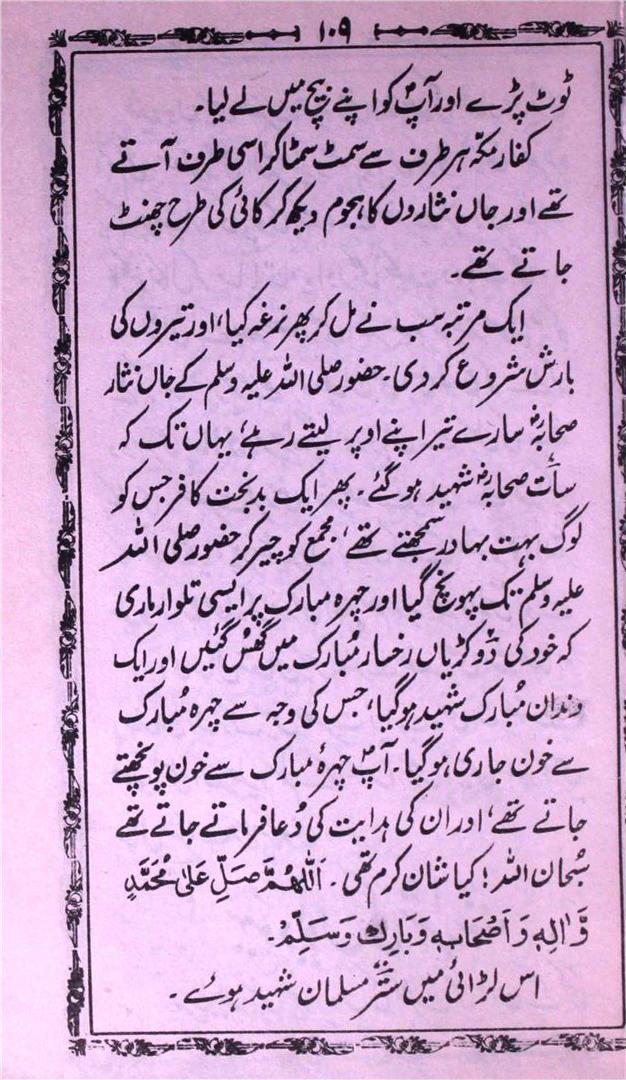 ۱۰۹
ٹوٹ پڑے اور آپؐ کو اپنے بیچ میں لے لیا۔
کفار مکہ ہر طرف سے سمٹ سمٹا کر اسی طرف آتے
تھے اور جاں نثاروں کا ہجوم دیکھ کر کائی کی طرح چھنٹ
جاتے تھے۔
ایک مرتبہ سب نے مل کر پھر نرغہ کیا، اور تیروں کی
بارش شروع کر دی۔ حضور صلی اللہ علیہ وسلم کے جاں نثار
صحابہؓ سارے تیر اپنے اوپر لیتے رہے، یہاں تک کہ
سات صحابہؓ شہید ہو گئے۔ پھر ایک بدبخت کافر جس کو
لوگ بہت بہادر سمجھتے تھے، مجمع کو چیر کر حضور صلی اللہ
علیہ وسلم تک پہونچ گیا اور چہرہ مبارک پر ایسی تلوار ماری
کہ خود کی دو کڑیاں رخسار مُبارک میں گھُس گئیں اور ایک
دندان مُبارک شہید ہو گیا، جس کی وجہ سے چہرہ مُبارک
سے خون جاری ہو گیا۔ آپؐ چہرۂ مبارک سے خون پونچھتے
جاتے تھے، اور ان کی ہدایت کی دُعا فرماتے جاتے تھے
سُبحان اللہ! کیا شان کرم تھی۔ اَللّٰھُمَّ صَلِّ عَلٰی مُحَمَّدٍ
وَّاٰلِہٖ وَاَصْحَابِہٖ وَبَارِكْ وَسَلِّمْ۔
اس لڑائی میں ستّر مسلمان شہید ہوئے۔